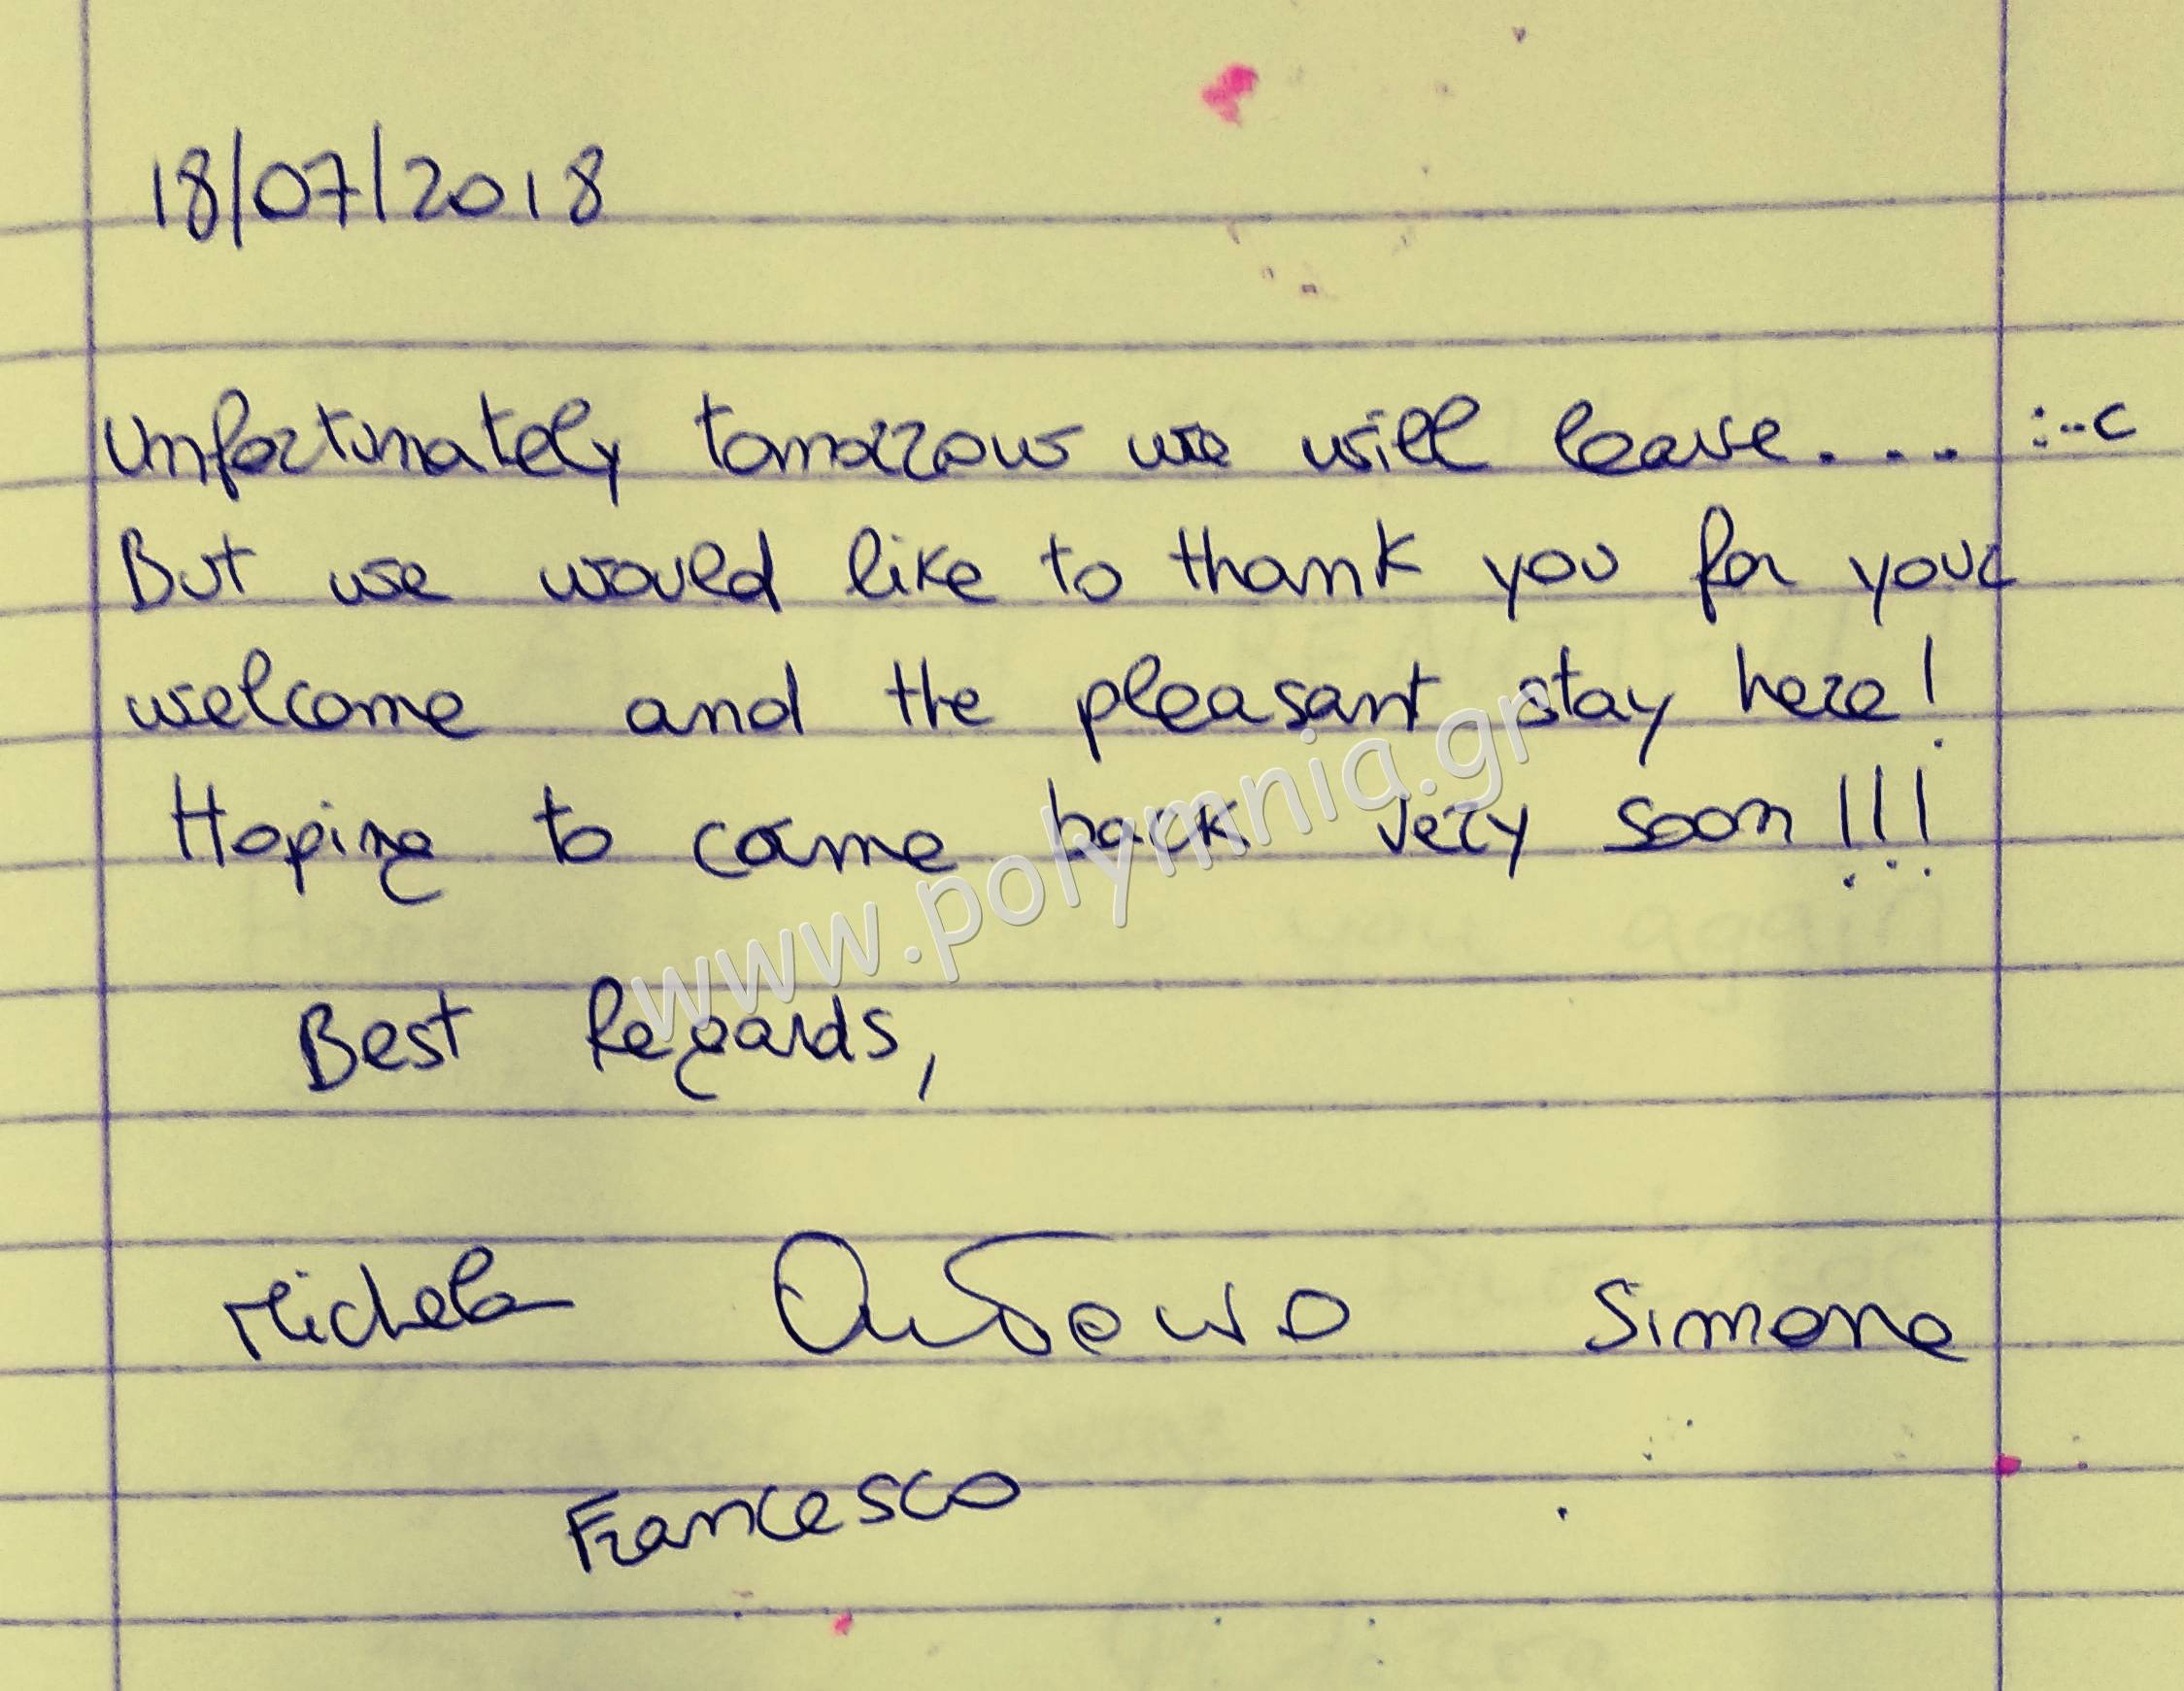 18/07/2018
Unfortunately tomorrow we will leave.... :--c
But we would like to thank you for your
welcome and the pleasant stay here!
Hoping to come back very soon!!!
www.polymnia.gr
Best Regards,
Michela Simone
Francesco